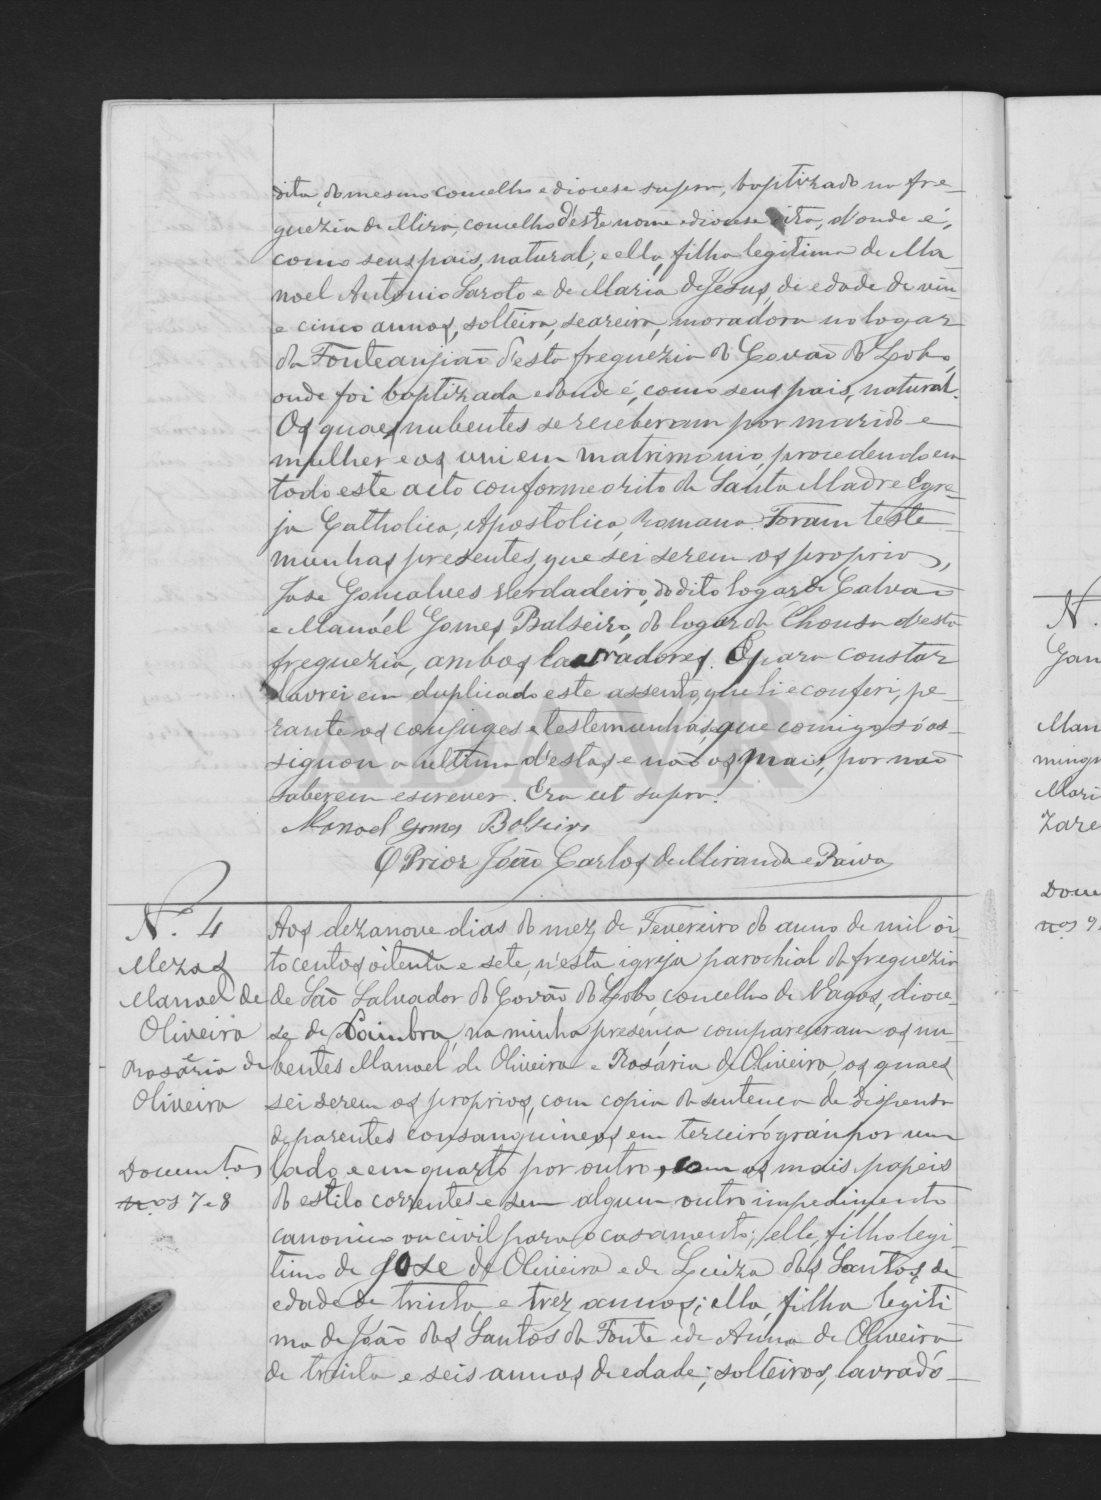 dita, do mesmo concelho e diocese supra, baptizado na fre-
guezia de Mira, concelho d'este nome e diocese dita, d'onde é,
como seus pais, natural; e ella, filha legitima de Ma-
noel Antonio Saroto e de Maria de Jesus, de edade de vin-
e cinco annos, solteira, seareira, moradora no logar
da Fonteanjião d'esta freguezia do Covão do Lobo,
onde foi baptizada e donde é, como seus pais, natural.
Os quaes nubentes se receberam por marido e
mulher e os uni em matrimonio, procedendo em
todo este acto conforme o rito da Santa Madre Egre-
ja Catholica, Apostolica, Romana. Foram teste-
munhas presentes, que sei serem os proprios,
Jose Gonçalves Verdadeiro, do dito logar de Calvão
e Manoél Gomes Balseiro, do logar da Chousa d'esta
freguezia, ambos lavradores. E para constar
lavrei em duplicado este assento, que li e conferi, pe-
rante os conjuges e testemunhas, que comigo só as-
signou a ultima d'estas e não os mais, por não
saberem escrever. Era ut supra.
Manoel Gomes Balseiro
O Prior João Carlos de Miranda e Paiva
N.º 4
Mezas
Manoel de
Oliveira
e
Rosária de
Oliveira
Documentos
nos 7 e 8
Aos dezanove dias do mez de Fevereiro do anno de mil oi-
tocentos oitenta e sete, n'esta igreja parochial da freguezia
de São Salvador do Covão do Lobo, concelho de Vagos, dioce-
se de Coimbra, na minha presença compareceram os nu-
bentes Manoel de Oliveira e Rosária de Oliveira, os quaes
sei serem os proprios, com copia da sentença de dispensa
de parentes consanguineos em terceiro gráu por um
lado, e em quarto por outro, com os mais papeis
do estilo correntes e sem algum outro impedimento
canonico ou civil para o casamento; elle, filho legi-
timo de Jose de Oliveira e de Luiza dos Santos, de
edade de trinta e trez annos; ella, filha legiti-
ma de João dos Santos da Fonte e de Anna de Oliveira
de trinta e seis annos de edade; solteiros, lavradô-
N.
Man
Mari
Zare
Docu
nos 9